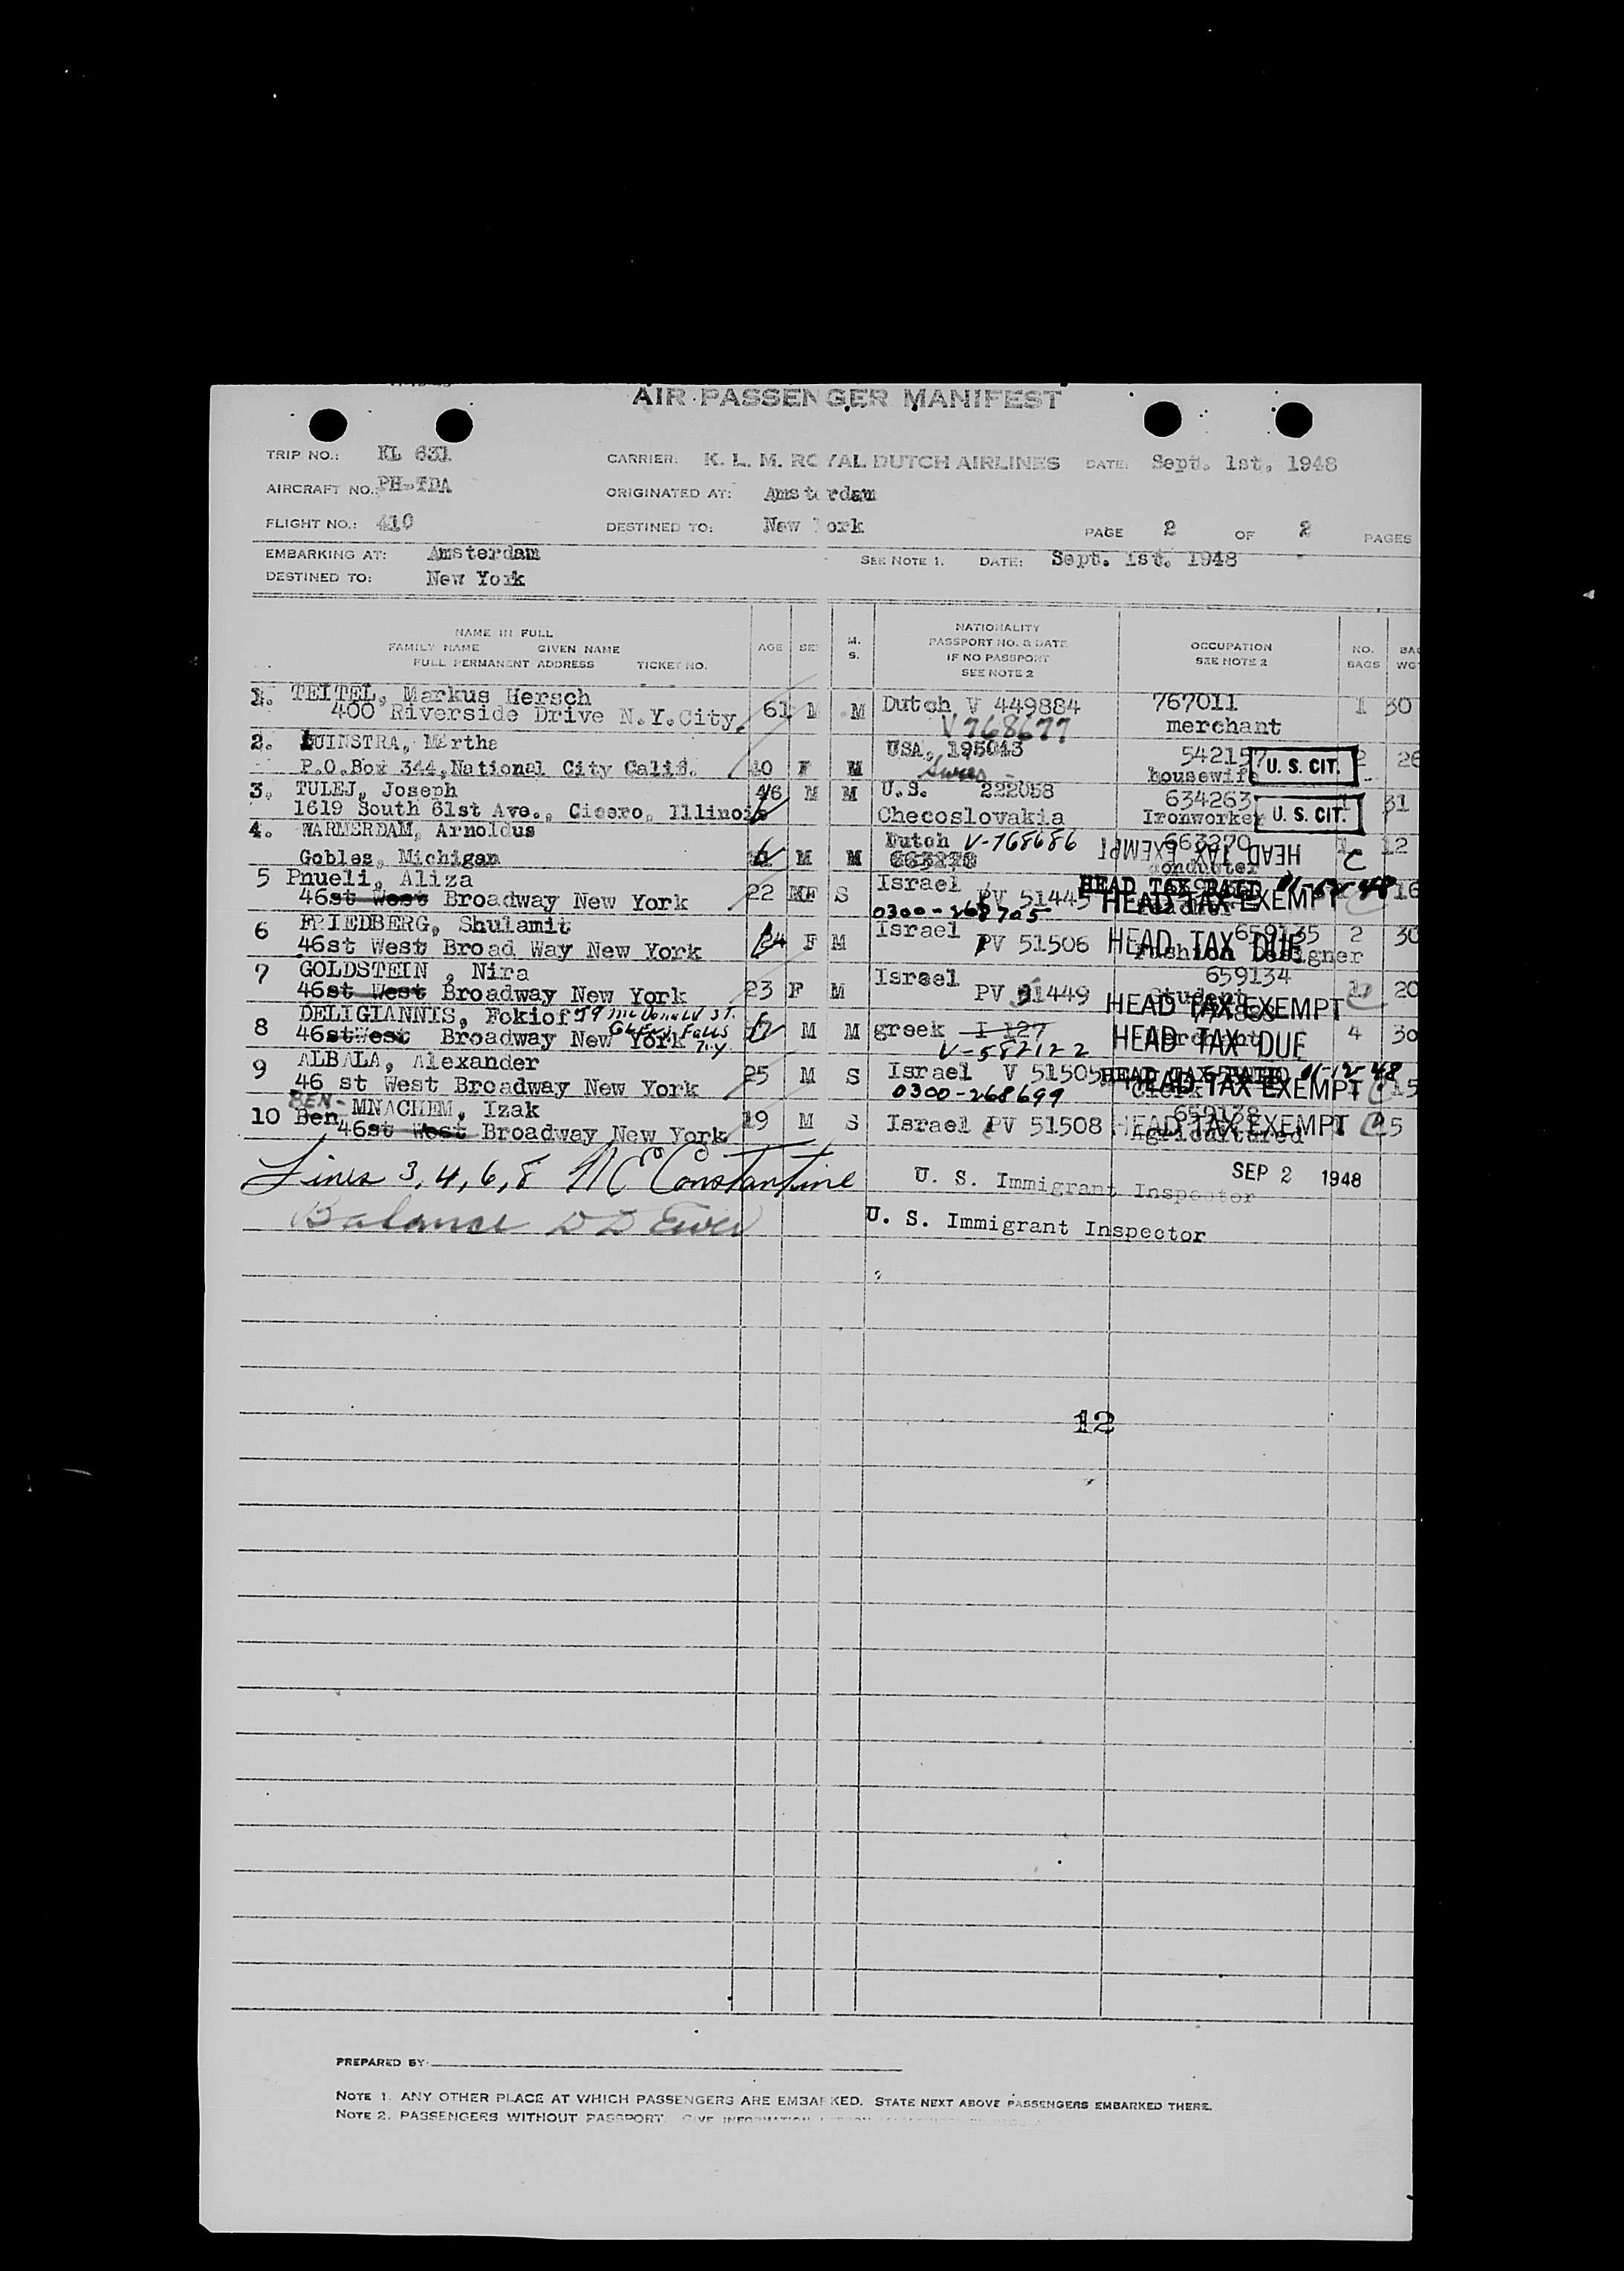 AIR PASSENGER MANIFEST
TRIP NO.: KL 631 CARRIER: K. L. M. ROYAL DUTCH AIRLINES DATE: Sept. 1st, 1948
AIRCRAFT NO.: PH-TDA ORIGINATED AT: Amsterdam
FLIGHT NO.: 410 DESTINED TO: New York PAGE 2 OF 2 PAGES
EMBARKING AT: Amsterdam SEE NOTE 1. DATE: Sept. 1st. 1948
DESTINED TO: New York
NAME IN FULL
FAMILY NAME GIVEN NAME
FULL PERMANENT ADDRESS TICKET NO.
AGE
M.
S.
NATIONALITY
PASSPORT NO. & DATE
IF NO PASSPORT
SEE NOTE 2
OCCUPATION
SEE NOTE 2
NO.
BAGS
1. TEITEL, Markus Hersch Dutch V 449884 767011 1 30
400 Riverside Drive N.Y.City. 61 M M V768677 merchant
2. Martha USA, 195043 542157 2 26
P.O.Box 344,National City Calif. F M housewife U. S. CIT.
3. TULEJ, Joseph 46 M M U.S. 222058 634263 31
1619 South 61st Ave., Cicero, Illinois Checoslovakia Ironworker U. S. CIT.
4. WARMERDAM, Arnoldus Dutch V-768686 663270 12
Gobles, Michigan M M HEAD TAX EXEMPT C
5 Pnueli, Aliza 22 F S Israel PV 51445 16
46st West Broadway New York 0300-268705 HEAD TAX EXEMPT
6 FRIEDBERG, Shulamit 24 F M Israel PV 51506 659135 2 30
46st West Broad Way New York HEAD TAX DUE Fashion Designer
7 GOLDSTEIN , Nira 23 F M Israel 659134 20
46st West Broadway New York PV 51449 Student HEAD TAX EXEMPT
8 DELIGIANNIS, Fokiof 59 McDonald ST. Glens Falls N.Y
46stWest Broadway New York M M greek I 127 HEAD TAX DUE 4 30
V-582122
9 ALBALA, Alexander 25 M S Israel V 51505
46 st West Broadway New York 0300-268699 Clerk HEAD TAX EXEMPT
BEN-
10 Ben MNACHEM, Izak 19 M S Israel PV 51508 659138 HEAD TAX EXEMPT
46st West Broadway New York
Lines 3, 4, 6, 8 N E Constantine U. S. Immigrant Inspector SEP 2 1948
Balance U. S. Immigrant Inspector
12
PREPARED BY
NOTE 1. ANY OTHER PLACE AT WHICH PASSENGERS ARE EMBARKED. STATE NEXT ABOVE PASSENGERS EMBARKED THERE.
NOTE 2. PASSENGERS WITHOUT PASSPORT.